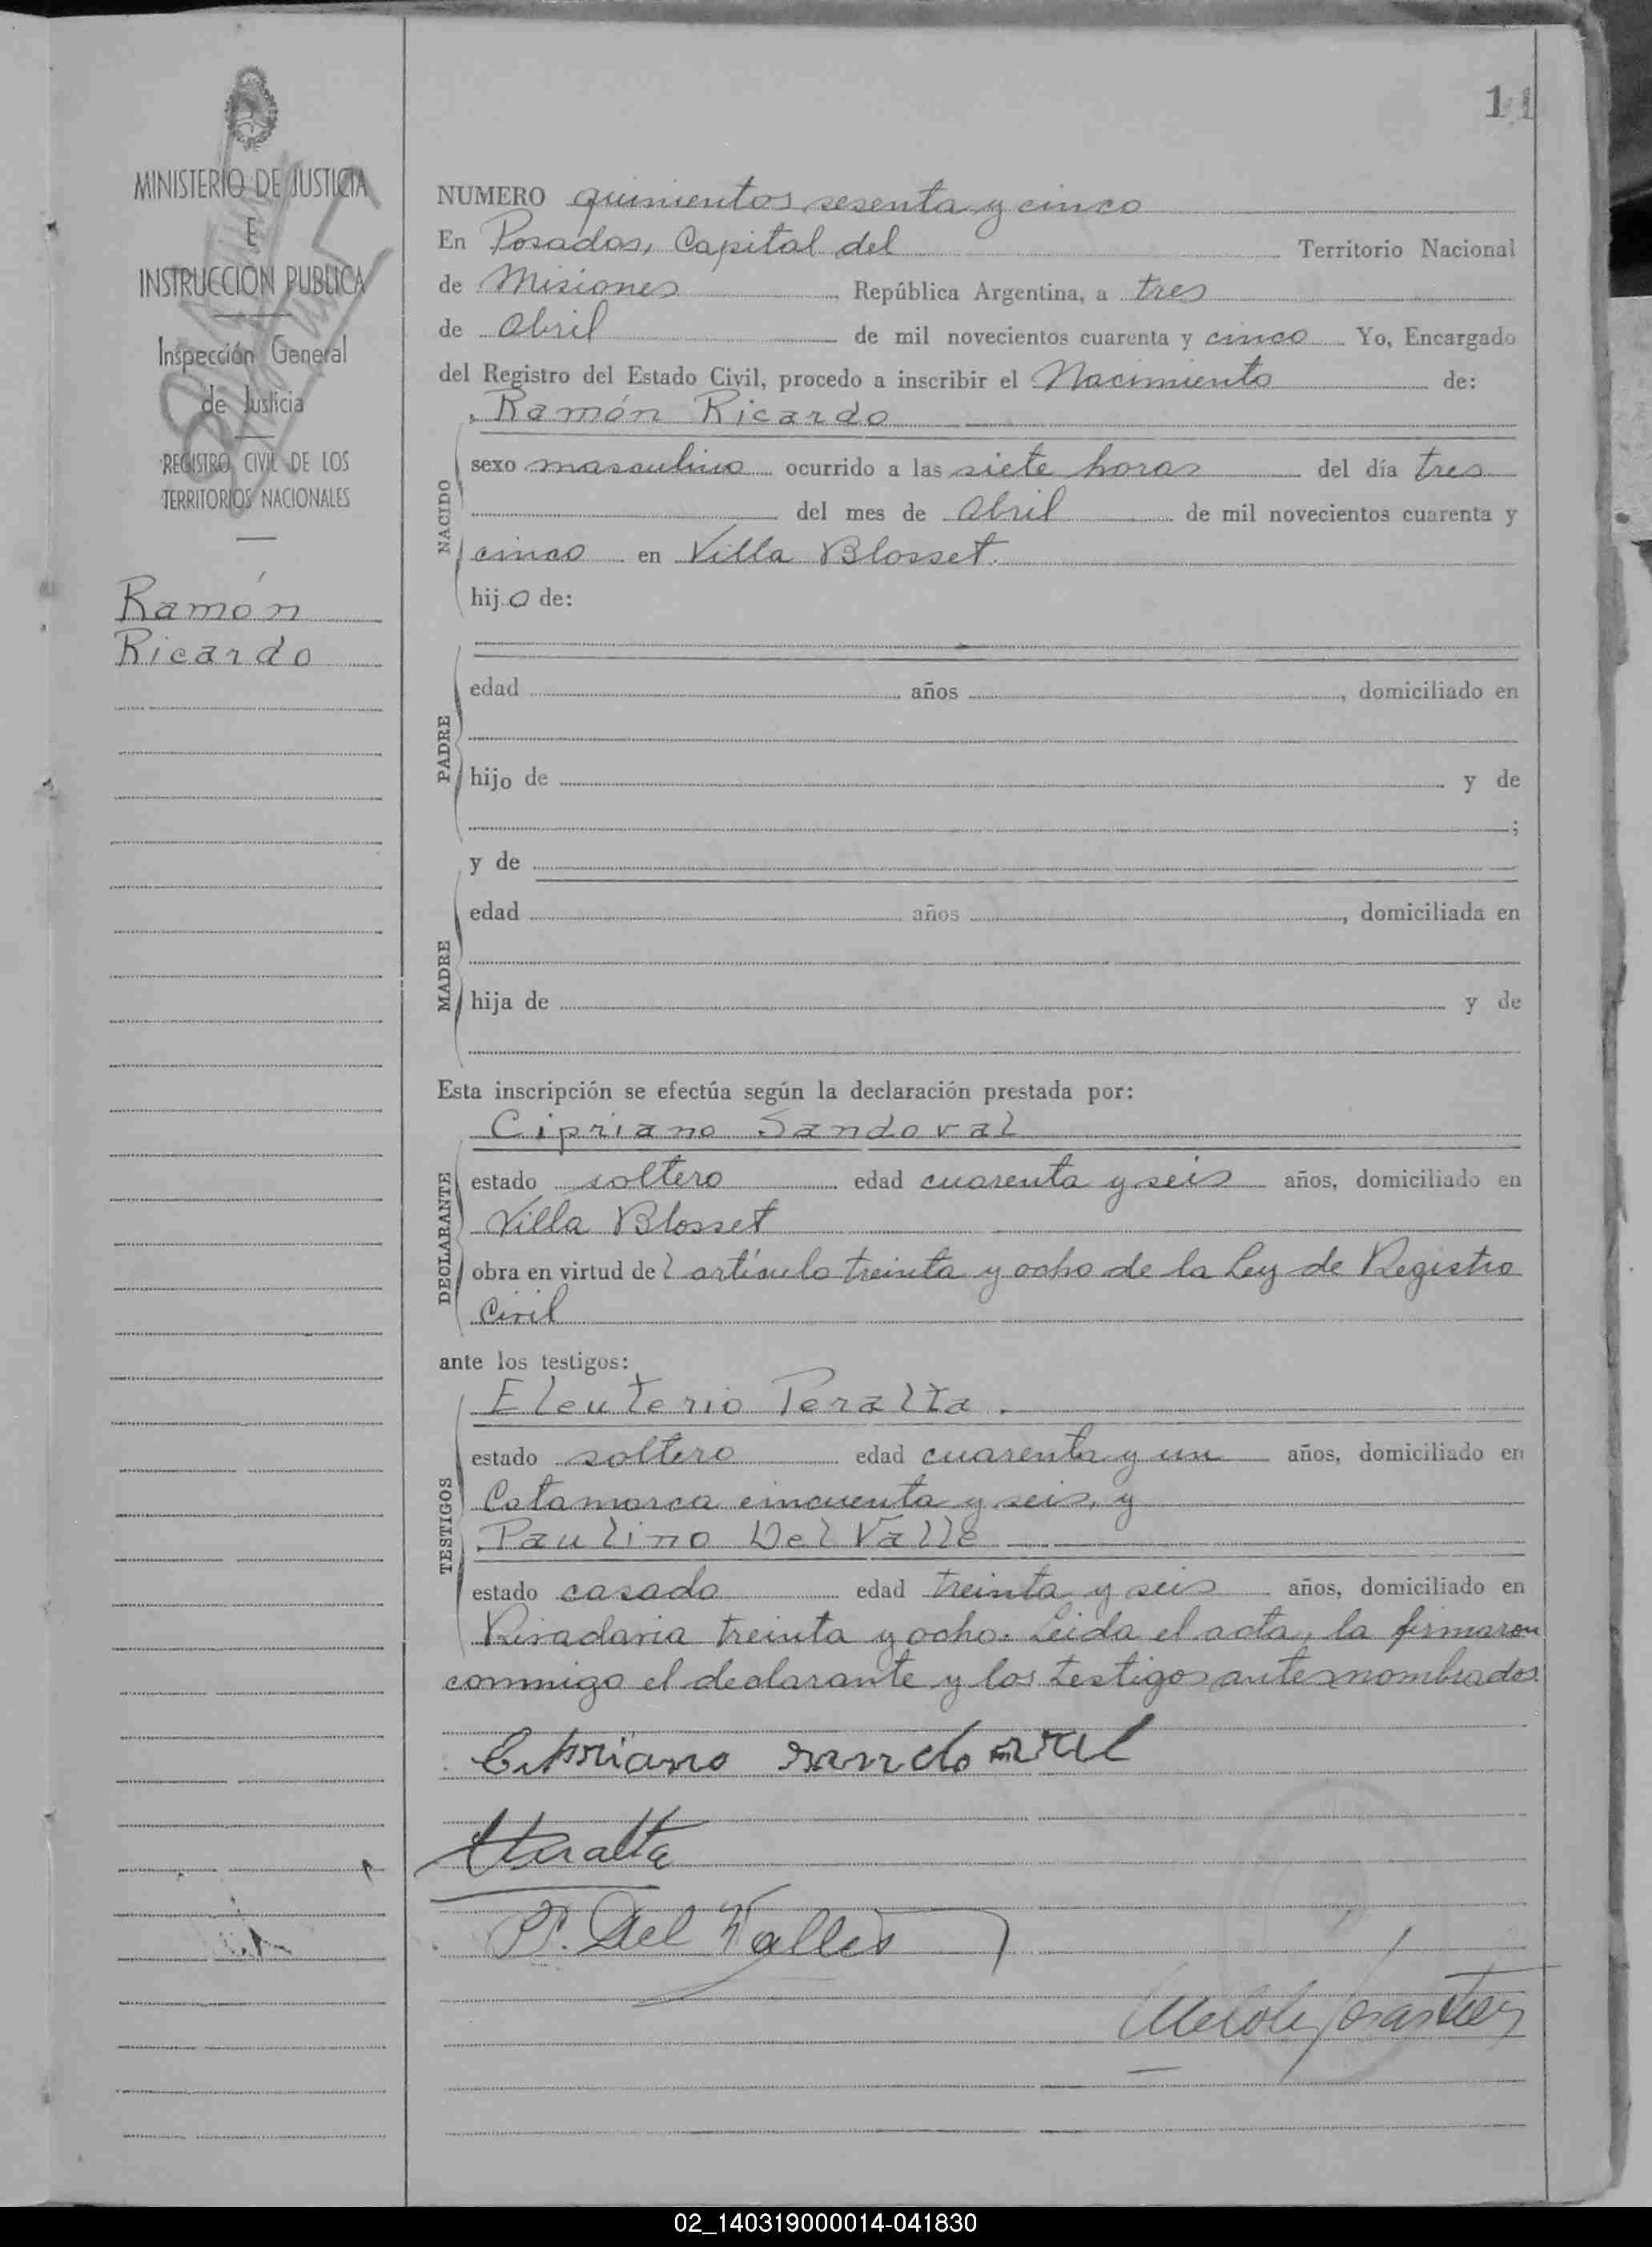 11
MINISTERIO DE JUSTICIA
E
INSTRUCCION PUBLICA
Inspección General
de Justicia
REGISTRO CIVIL DE LOS
TERRITORIOS NACIONALES
Ramón
Ricardo
NUMERO quinientos sesenta y cinco
En Posadas, Capital del Territorio Nacional
de Misiones, República Argentina, a tres
de Abril de mil novecientos cuarenta y cinco Yo, Encargado
del Registro del Estado Civil, procedo a inscribir el Nacimiento de:
Ramón Ricardo
NACIDO
sexo masculino ocurrido a las siete horas del día tres
del mes de Abril de mil novecientos cuarenta y
cinco en Villa Blosset.
hijo de:
PADRE
edad años, domiciliado en
hijo de y de
;
y de
MADRE
edad años, domiciliada en
hija de y de
Esta inscripción se efectúa según la declaración prestada por:
Cipriano Sandoval
DECLARANTE
estado soltero edad cuarenta y seis años, domiciliado en
Villa Blosset
obra en virtud del artículo treinta y ocho de la Ley de Registro
Civil
ante los testigos:
Eleuterio Peralta.
TESTIGOS
estado soltero edad cuarenta y un años, domiciliado en
Catamarca cincuenta y seis, y
Paulino Del Valle
estado casado edad treinta y seis años, domiciliado en
Rivadavia treinta y ocho. Leida el acta, la firmaron
conmigo el declarante y los testigos antes nombrados
Cipriano sandoval
EPeralta
P. Del Valle
02_140319000014-041830